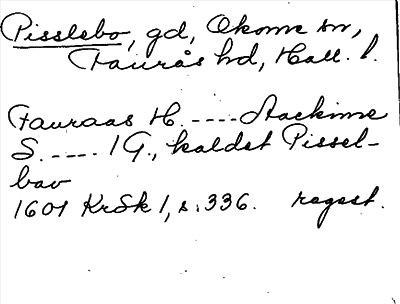 Pisslebo, gd, Okome sn,
Faurås hd, Hall. l.
Fauraas H. ---- Aackime
S. ---- 1 G., kaldet Pissel-
bav
1601 KrSk 1, s. 336. regest.